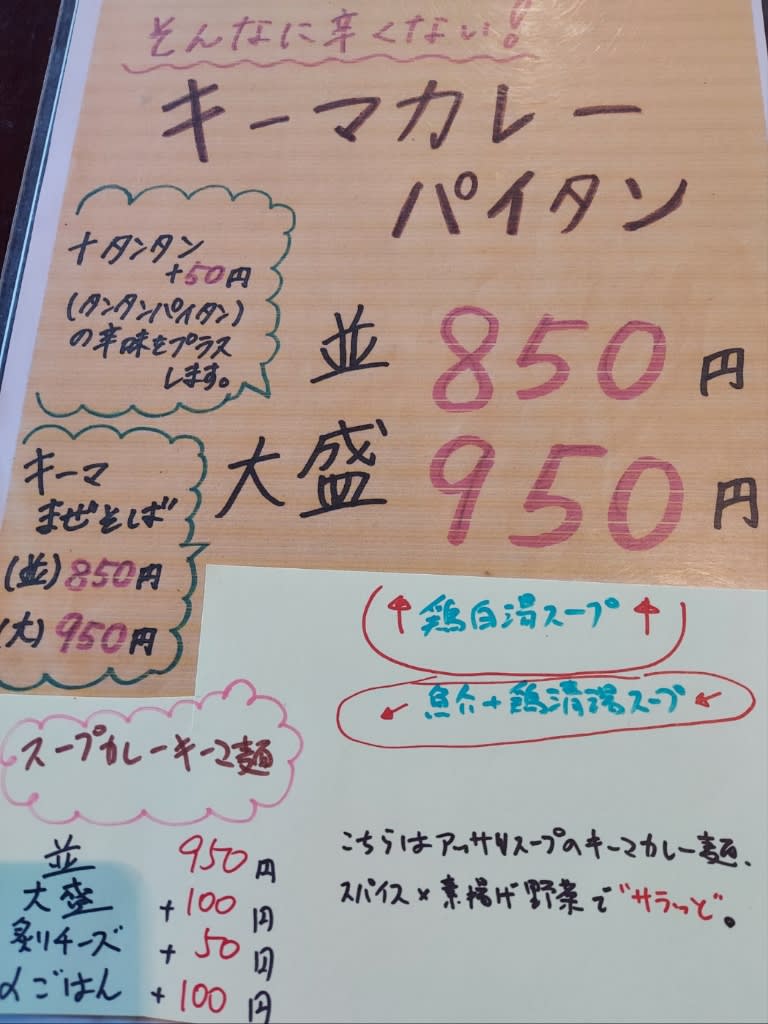 そんなに辛くない!
キーマカレー
パイタン
+タンタン
+50円
(タンタンパイタン)
の辛味をプラス
します。
並 850円
大盛 950円
キーマ
まぜそば
(並) 850円
(大) 950円
↑鶏白湯スープ↑
←魚介+鶏清湯スープ←
スープカレーキーマ麺
並 950円
大盛 +100円
炙りチーズ +50円
〆ごはん +100円
こちらはアッサリスープのキーマカレー麺、
スパイス×素揚げ野菜で"サラッと"。